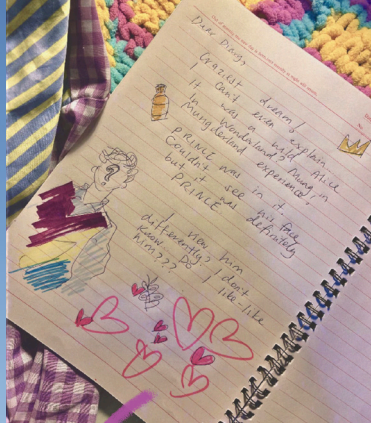 Dear Diary,
Craziest dream!
I can't even explain
It was a wild Alice
In Wonderland Mung, in
Mungderland experience.
PRINCE was in it
Couldn't see his face,
but it was definitely
PRINCE
I view him
differently? I don't
know. Do I like like
him???